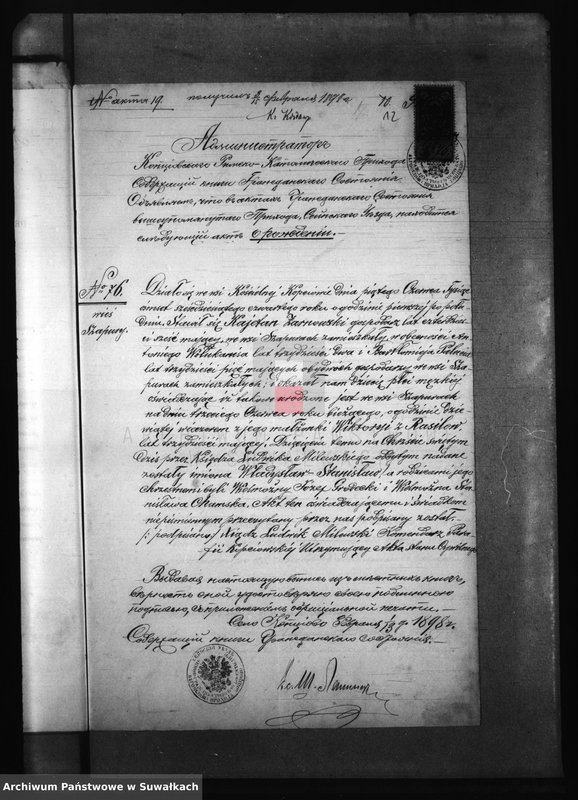 № акта 19. получилъ 2/4 февраля 1898 г. 70.
Кс. 12
Администраторъ
Копціовскаго Римско-Католическаго Прихода
Содержащій книги Гражданскаго Состоянія
Объявляетъ, что въ актахъ Гражданскаго Состоянія
вышеупомянутаго Прихода, Сейнскаго Уѣзда, находится
слѣдующій актъ о рожденіи. —
№ 76.
wieś
Szapury.
Działo się we wsi Kościelnej Kopciowie dnia piątego Czerwca Tysiąc
ośmset sześćdziesiątego czwartego roku o godzinie pierwszej po połu-
dniu. Stawił się Kajetan Żarnowski gospodarz lat czterdzieści
i sześć mający, we wsi Szapurach zamieszkały w obecności An-
toniego Wilukania lat trzydzieści dwa i Bartłomieja
lat trzydzieści pięć mających obydwóch gospodarzy we wsi Sza-
purach zamieszkałych, i okazał nam dziecię płci męzkiej
oświadczając iż takowe urodzone jest we wsi Szapurach
na dniu trzecim Czerwca roku bieżącego, o godzinie dzie-
wiątej wieczorem z jego małżonki Wiktoryi z
lat trzydzieści mającej. Dziecięciu temu na Chrzcie Świętym
dziś przez Księdza Ludwika Milewskiego odbytym nadane
zostały imiona Władysław-Stanisław, a rodzicami jego
chrzestnemi byli Wielmożny Józef Grodzki i Wielmożna Sta-
nisława Akt ten oświadczającemu i świadkom
niepiśmiennym przeczytany, przez nas podpisany został.
/: podpisano:/ Xiądz Ludwik Milewski Komendarz Para-
fii Kopciowskiej Utrzymujący Akta Stanu Cywilnego
Выдавая настоящую выпись изъ книгъ,
вѣрность оной удостовѣряю своею подлинною
подписью, съ приложеніемъ оффиціальной печати. —
Село Копціово Февраля 1898 г.
Содержащій книги Гражданскаго состоянія. —
Кс. Ш.
Archiwum Państwowe w Suwałkach